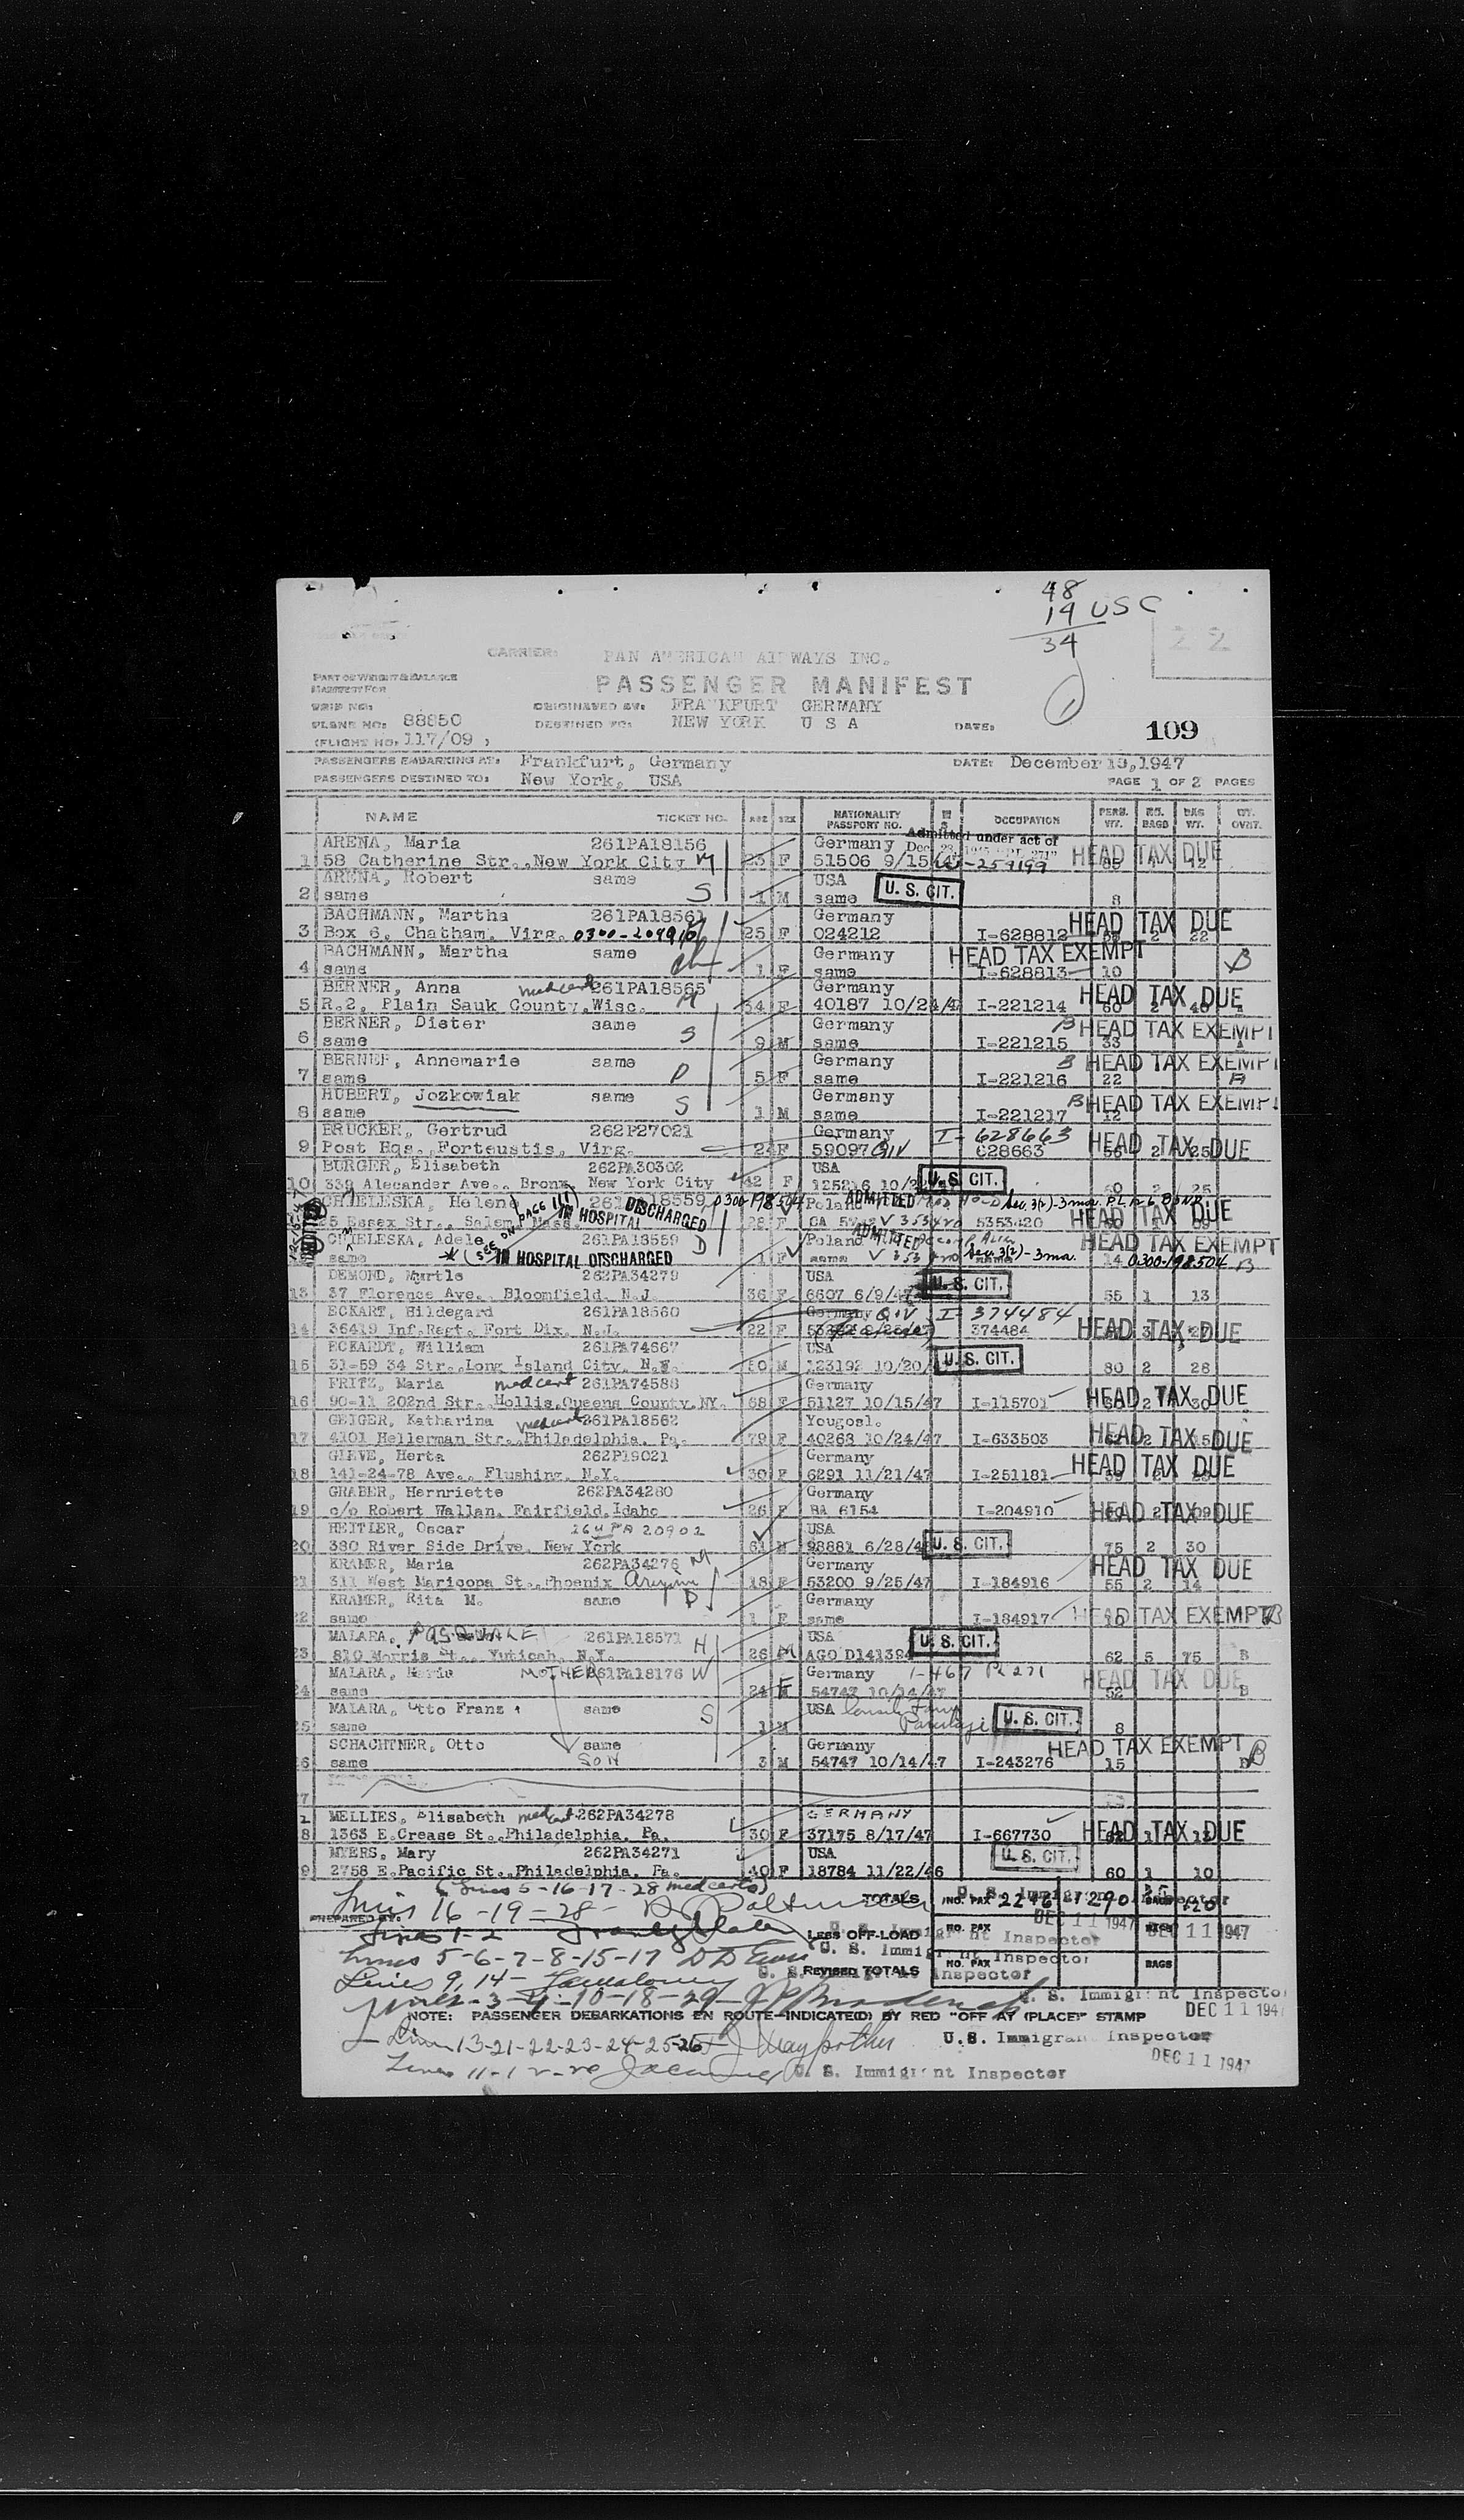 48
14 USC
34
22
CARRIER: PAN AMERICAN AIRWAYS INC.
PART OF WEIGHT & BALANCE
MANIFEST FOR
PASSENGER MANIFEST
TRIP NO:
ORIGINATED BY: FRANKFURT GERMANY
PLANE NO: 88850
DESTINED TO: NEW YORK U S A
DATE:
109
(FLIGHT NO. 117/09 )
PASSENGERS EMBARKING AT: Frankfurt, Germany
DATE: December 13, 1947
PASSENGERS DESTINED TO: New York, USA
PAGE 1 OF 2 PAGES
NAME TICKET NO. AGE SEX NATIONALITY PASSPORT NO. OCCUPATION PERS. WT. NO. BAGS BAG WT. WT. OVRT.
ARENA, Maria 261PA18156 Germany Admitted under act of
1 58 Catherine Str., New York City M 23 F 51506 9/15 HEAD TAX DUE
ARENA, Robert same USA
2 same S 1 M same U. S. CIT. 8
BACHMANN, Martha 261PA18561 Germany HEAD TAX DUE
3 Box 6, Chatham, Virg. 25 F 024212 I-628812 2 22
BACHMANN, Martha same Germany HEAD TAX EXEMPT
4 same 1 F same I-628813 10 B
BERNER, Anna med cert 261PA18565 Germany HEAD TAX DUE
5 R.2, Plain Sauk County, Wisc. M 34 F 40187 10/24/47 I-221214 60 2 40
BERNER, Dieter same Germany B HEAD TAX EXEMPT
6 same S 9 M same I-221215 33
BERNER, Annemarie same Germany B HEAD TAX EXEMPT
7 same D 5 F same I-221216 22
HUBERT, Jozkowiak same Germany B HEAD TAX EXEMPT
8 same S 1 M same I-221217 12
BRUCKER, Gertrud 262P27021 Germany I-628663 HEAD TAX DUE
9 Post Hqs., Forteustis, Virg. 24 F 59097 QIV 628663 56 2 25
BURGER, Elisabeth 262PA30302 USA U. S. CIT.
10 339 Alecander Ave., Bronx, New York City 42 F 125216 10/2 60 2 25
CHIELESKA, Helene 261PA18559 0300-198504 Poland ADMITTED Sec. 3(2)-3 mo. HEAD TAX DUE
(SEE ON PAGE 111) IN HOSPITAL DISCHARGED
25 Essex Str., Salem, Mass. 28 F 5353420
CHIELESKA, Adele 261PA18559 Poland ADMITTED HEAD TAX EXEMPT
same IN HOSPITAL DISCHARGED D 1 F same Sec. 3(2)-3 mo. 14 0300-198504 B
DEMOND, Myrtle 262PA34279 USA U. S. CIT.
13 37 Florence Ave., Bloomfield, N.J. 36 F 6607 6/9/47 55 1 13
ECKART, Hildegard 261PA18560 Germany QIV I-374484
14 36419 Inf.Regt. Fort Dix, N.J. 22 F 374484 HEAD TAX DUE
ECKARDT, William 261PA74667 USA
15 31-59 34 Str., Long Island City, N.Y. 50 M 123192 10/20/ U. S. CIT. 80 2 28
FRITZ, Maria med cert 261PA74588 Germany
16 90-11 202nd Str., Hollis, Queens County, NY. 68 F 51127 10/15/47 I-115701 HEAD TAX DUE
GEIGER, Katharina med cert 261PA18562 Yougosl.
17 4101 Hellerman Str., Philadelphia, Pa. 79 F 40268 10/24/47 I-633503 HEAD TAX DUE
GLAVE, Herta 262P19021 Germany
18 141-24-78 Ave., Flushing, N.Y. 30 F 6291 11/21/47 I-251181 HEAD TAX DUE
GRABER, Hernriette 262PA34280 Germany
19 c/o Robert Wallan, Fairfield, Idaho 26 F BA 6154 I-204910 HEAD TAX DUE
HEITLER, Oscar 264PA 20902 USA
20 380 River Side Drive, New York 61 M 98881 6/28/4 U. S. CIT. 75 2 30
KRAMER, Maria 262PA34276 M Germany HEAD TAX DUE
21 311 West Maricopa St., Phoenix 18 F 53200 9/25/47 I-184916 55 2 14
KRAMER, Rita M. same D Germany
22 same 1 F same I-184917 10 HEAD TAX EXEMPT B
MALARA, PASQUALE 261PA18571 H USA U. S. CIT.
23 810 Morris St., Yuticah, N.Y. 26 M AGO D141394 62 5 75 B
MALARA, Maria MOTHER 261PA18176 W Germany HEAD TAX DUE
24 same 24 F 54747 10/14/47 52 B
MALARA, Otto Franz same S USA
25 same 1 M U. S. CIT. 8
SCHACHTNER, Otto same Germany HEAD TAX EXEMPT B
26 same SON 3 M 54747 10/14/47 I-243276 15
27
MELLIES, Elisabeth med cert 262PA34278 GERMANY
28 1363 E.Crease St., Philadelphia, Pa. 30 F 37175 8/17/47 I-667730 HEAD TAX DUE
MYERS, Mary 262PA34271 USA U. S. CIT.
29 2758 E.Pacific St., Philadelphia, Pa. 40 F 18784 11/22/46 60 1 10
(Lines 5-16-17-28 med certs)
Lines 16-19-28-
TOTALS NO. PAX 2246 1290 BAGS
PREPARED BY:
U. S. Immigrant Inspector
DEC 11 1947
Lines 1-2
LESS OFF-LOAD NO. PAX BAGS
DEC 11 1947
Lines 5-6-7-8-15-17
U. S. Immigrant Inspector
REVISED TOTALS NO. PAX BAGS
Lines 9, 14-
U. S. Immigrant Inspector
Lines-3-4-10-18-29-
U. S. Immigrant Inspector
NOTE: PASSENGER DEBARKATIONS EN ROUTE-INDICATE(D) BY RED "OFF AT (PLACE)" STAMP
DEC 11 1947
Lines 13-21-22-23-24-25-26
U.S. Immigrant Inspector
DEC 11 1947
Lines 11-12-20
U. S. Immigrant Inspector